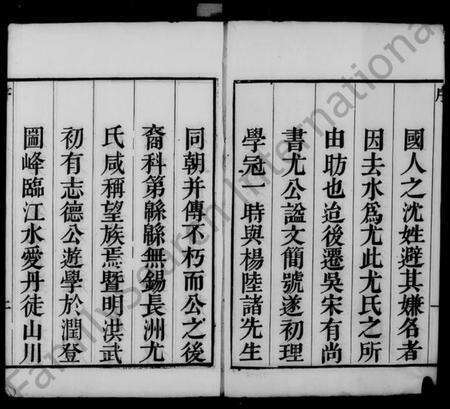 序
國人之沈姓避其嫌名者
因去水爲尤此尤氏之所
由昉也迨後遷吳宋有尚
書尤公謚文簡號遂初理
學冠一時與楊陸諸先生
同朝并傳不朽而公之後
裔科第緜緜無錫長洲尤
氏咸稱望族焉暨明洪武
初有志德公遊學於潤登
圖峰臨江水愛丹徒山川
FamilySearch International